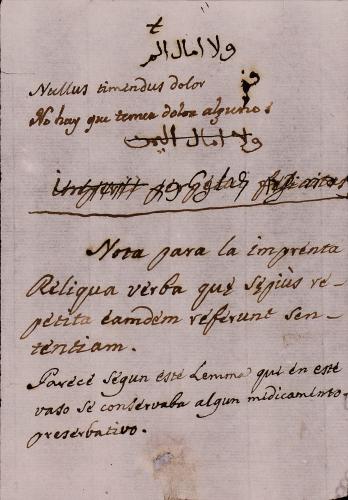 ولا امال الم
Nullus timendus dolor
No hay que temer dolor alguno.
ولا امال اليمن
Nota para la imprenta
Reliqua verba que sepiùs re-
petita eamdem referunt sen-
tentiam.
Parece segun este Lemma que en este
vaso se conservaba algun medicamento
preserbativo.